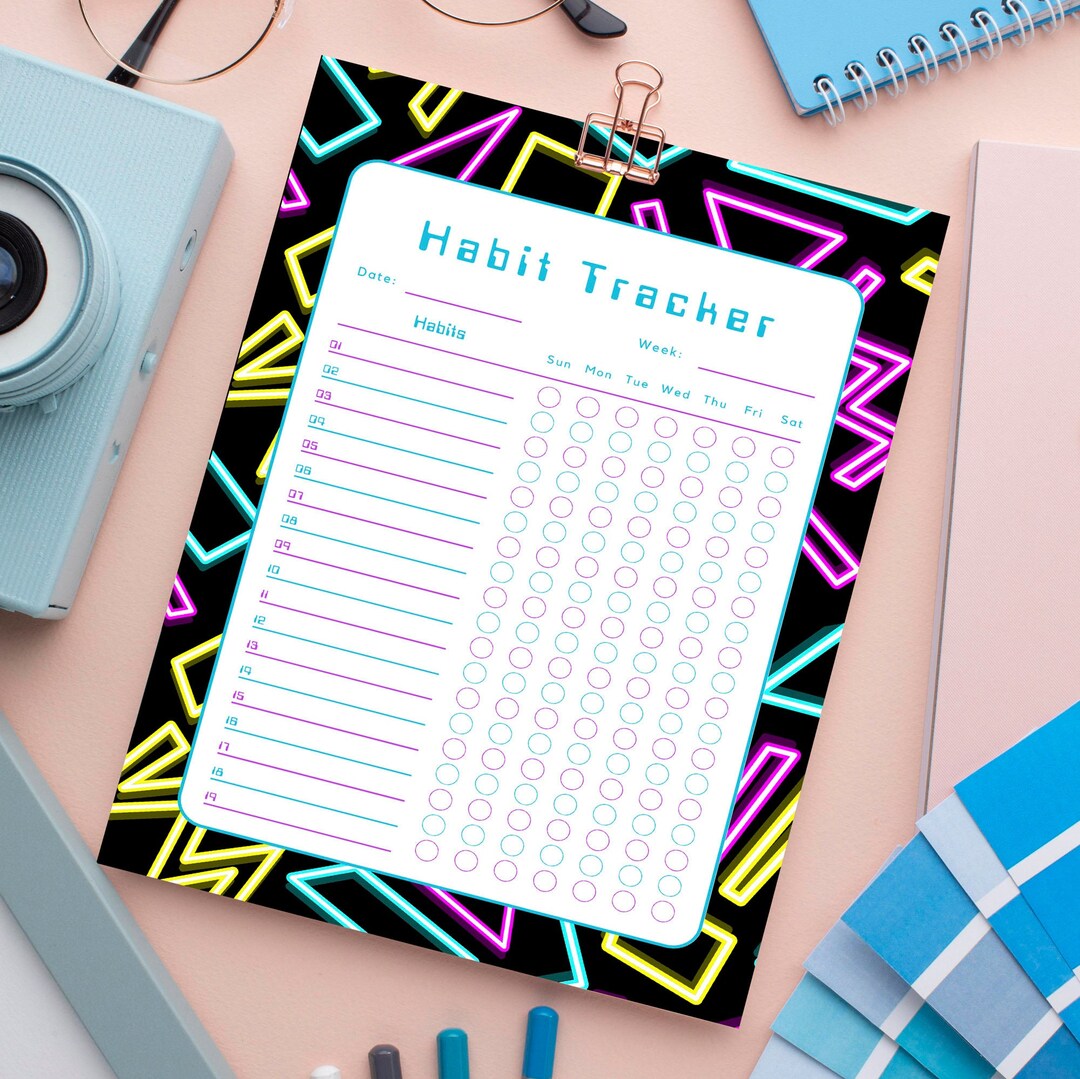 Habit Tracker
Date:
Week:
Habits
Sun Mon Tue Wed Thu Fri Sat
01
02
03
04
05
06
07
08
09
10
11
12
13
14
15
16
17
18
19